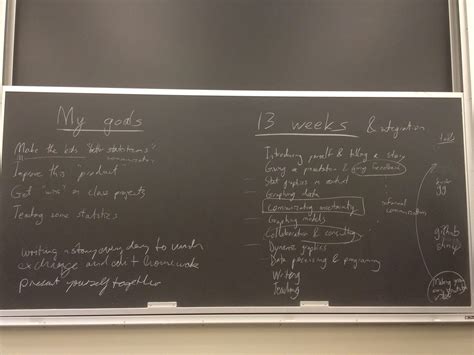 My goals
Make the kids better statisticians?
communicators
Improve this product
Get "wise" on class projects
Teaching some statistics
writing a story every day to
exchange and do homework
present yourself together
13 weeks & integration
Introducing yourself & telling a story
Giving a presentation & giving feedback
Stat graphics in context
Graphing data
Communicating uncertainty
Graphing models
Collaboration & consulting
Dynamic graphics
Data processing & programming
Writing
Teaching
tools
gg
informal communication
github
shiny
Making your own